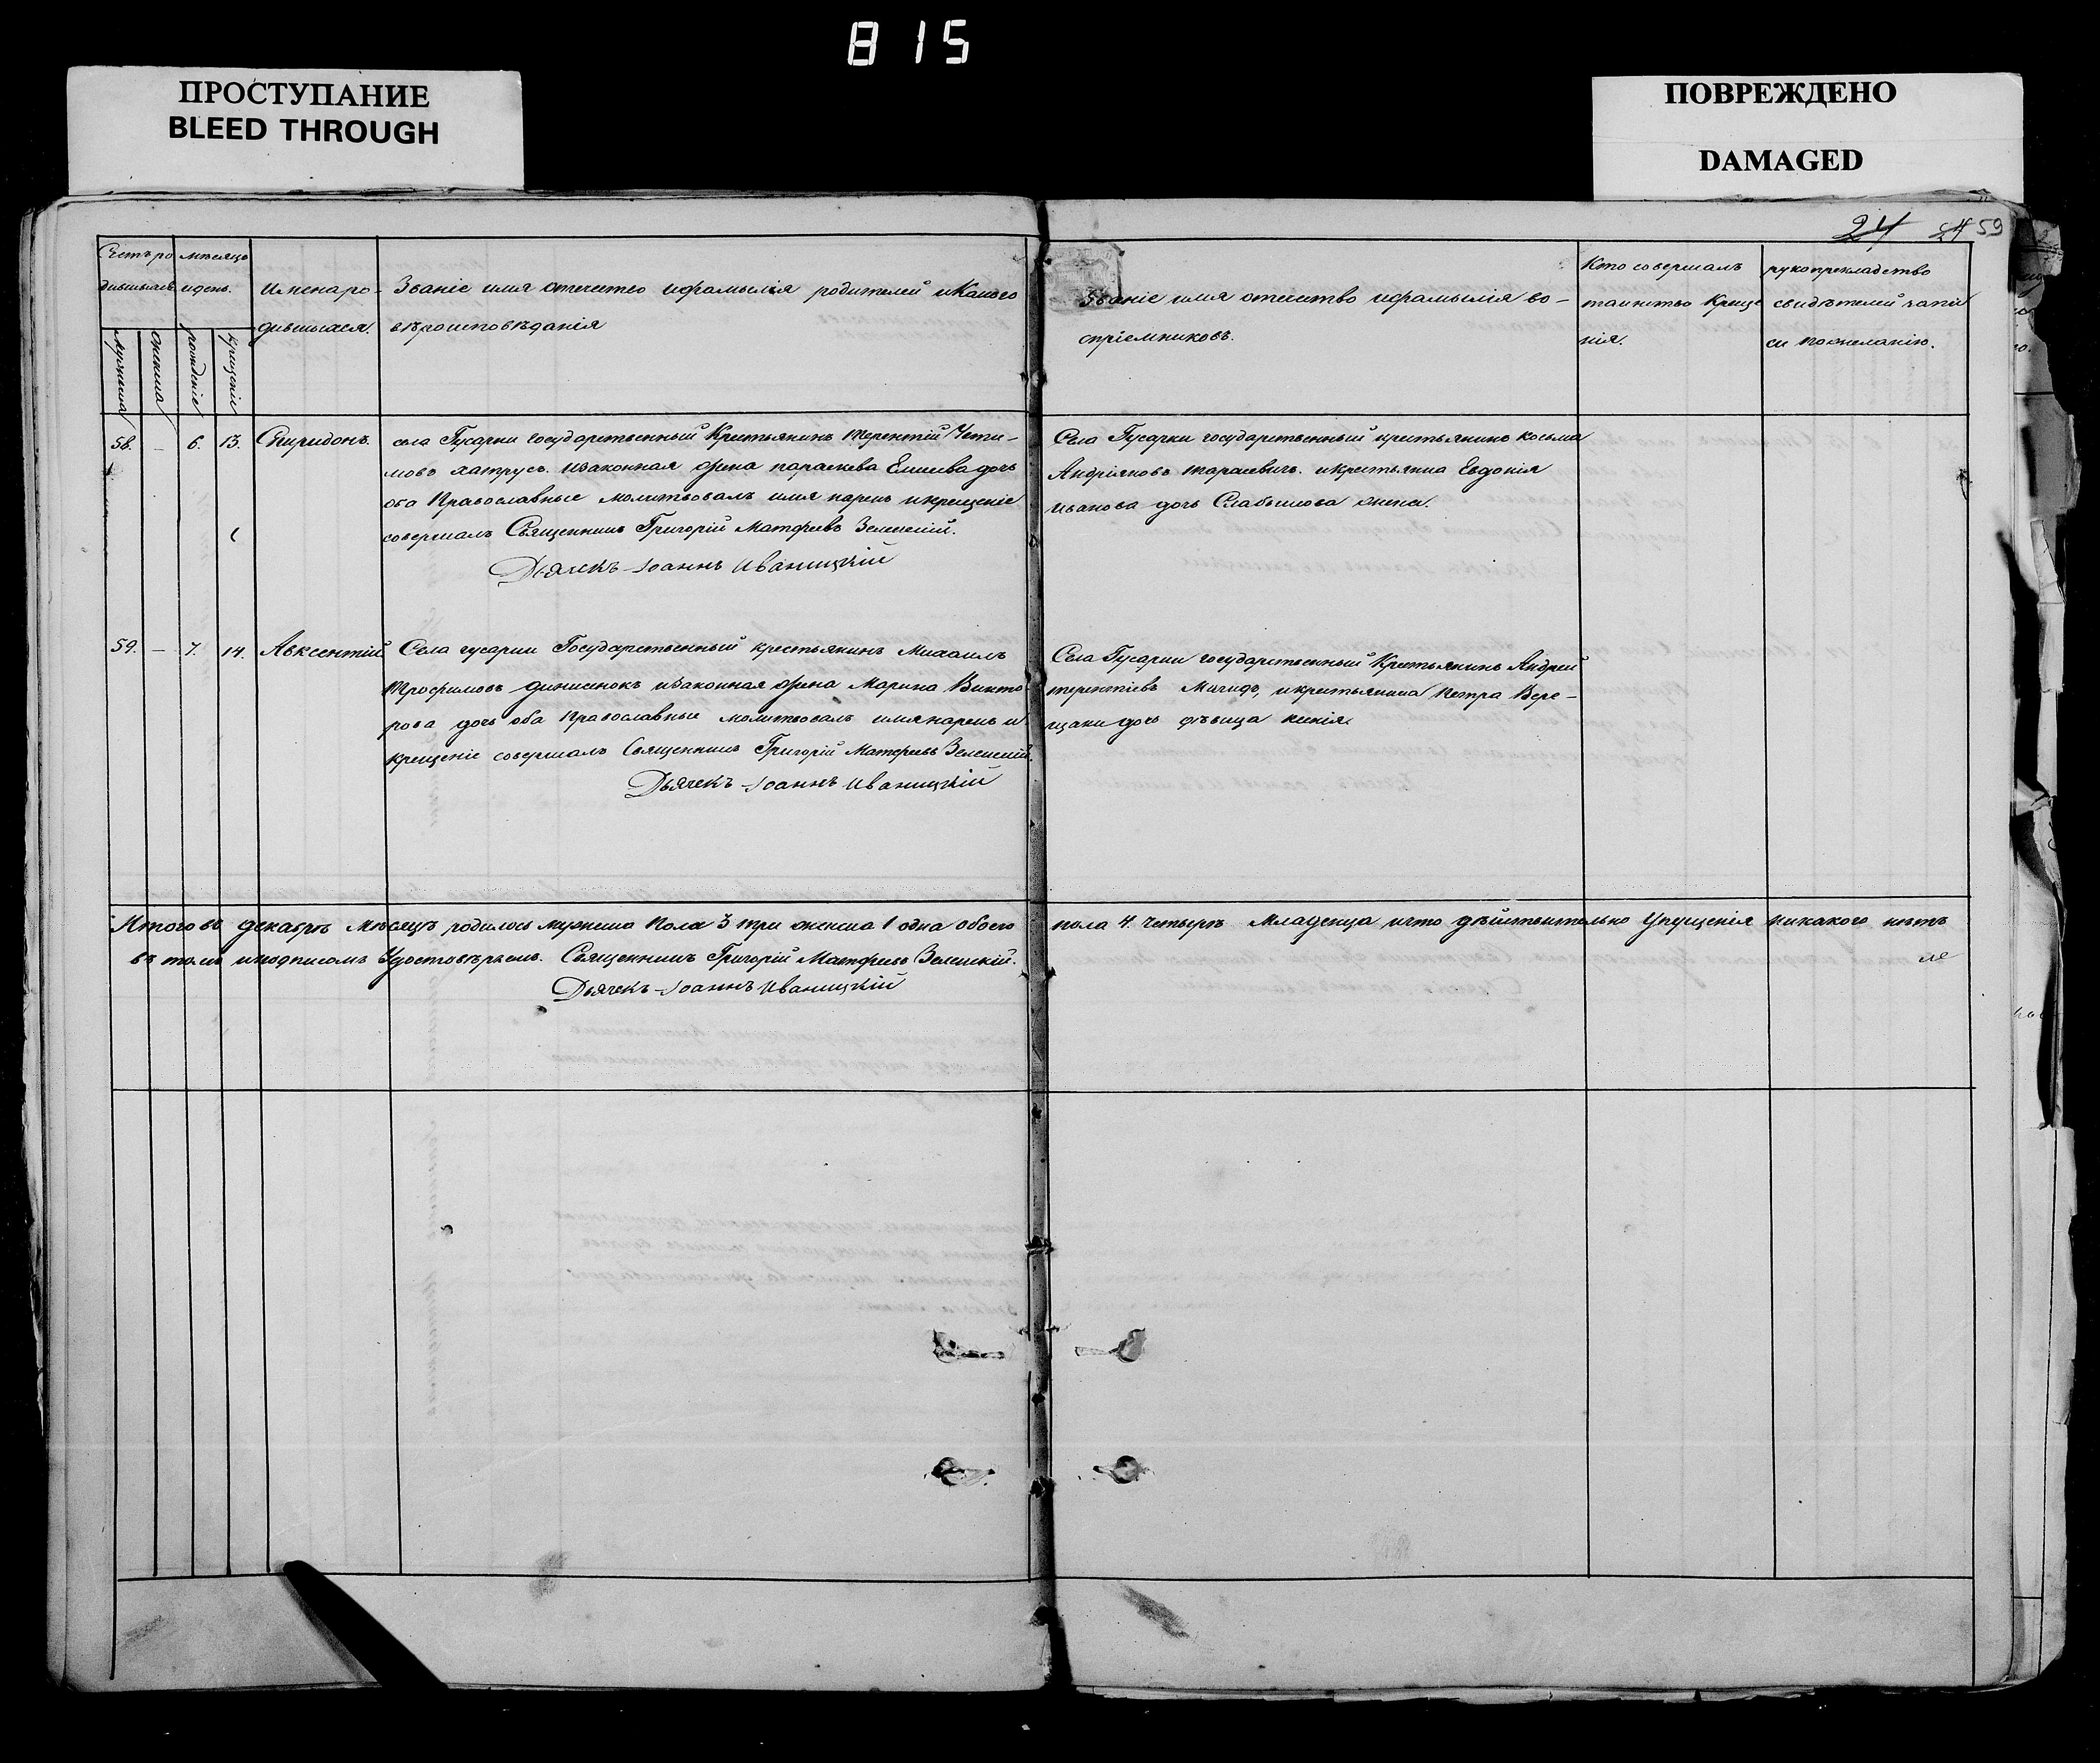 815
ПРОСТУПАНИЕ
BLEED THROUGH
ПОВРЕЖДЕНО
DAMAGED
24 24 59
Счетъ ро
дившихся
мужеска
женска
мѣсяцъ
и день.
рожденіе
крещеніе
Имена ро-
дившихся.
Званіе имя отечество ифамылія родителей иКакого
вѣроисповѣданія
Званіе имя отечество ифамылія во-
спріемниковъ.
Кто совершалъ
таинство Креще
нія.
рукоприкладство
свидѣтелей запи
си пожеланію.
58. — 6. 13. Спиридонъ.
села Гусарки государственный Крестьянинъ терентій
мовъ хатрусъ. изаконная жена параскева дочь
оба Православные молитвовалъ имя нарекъ икрещеніе
совершалъ Священникъ Григорій Матфеевъ Зеленскій.
Дьячекъ Іоаннъ Иваницкій
Села Гусарки государственный крестьянинъ козьма
Андріяновъ тарасевичъ. икрестьянка Евдокія
иванова дочь жена.
59. — 7. 14. Авксентій.
Села гусарки Государственный крестьянинъ Михаилъ
Трофимовъ динисенокъ изаконная жена Марина Викто
рова дочь оба Православные молитвовалъ имянарекъ и
крещеніе совершалъ Священникъ Григорій Матфеевъ Зеленскій.
Дьячекъ Іоаннъ Иваницкій
Села Гусарки государственный Крестьянинъ Андрей
терентіевъ икрестьянина Петра Вере-
щаки дочь дѣвица
Итого въ декабрѣ мѣсяцѣ родилось мужеска Пола 3 три женска 1 одна обоего пола 4. четыре Младенца ичто дѣйствительно Упущенія никакого нѣтъ
въ томъ иподписомъ Удостовѣряемъ. Священникъ Григорій Матфеевъ Зеленскій.
Дьячекъ Іоаннъ Иваницкій